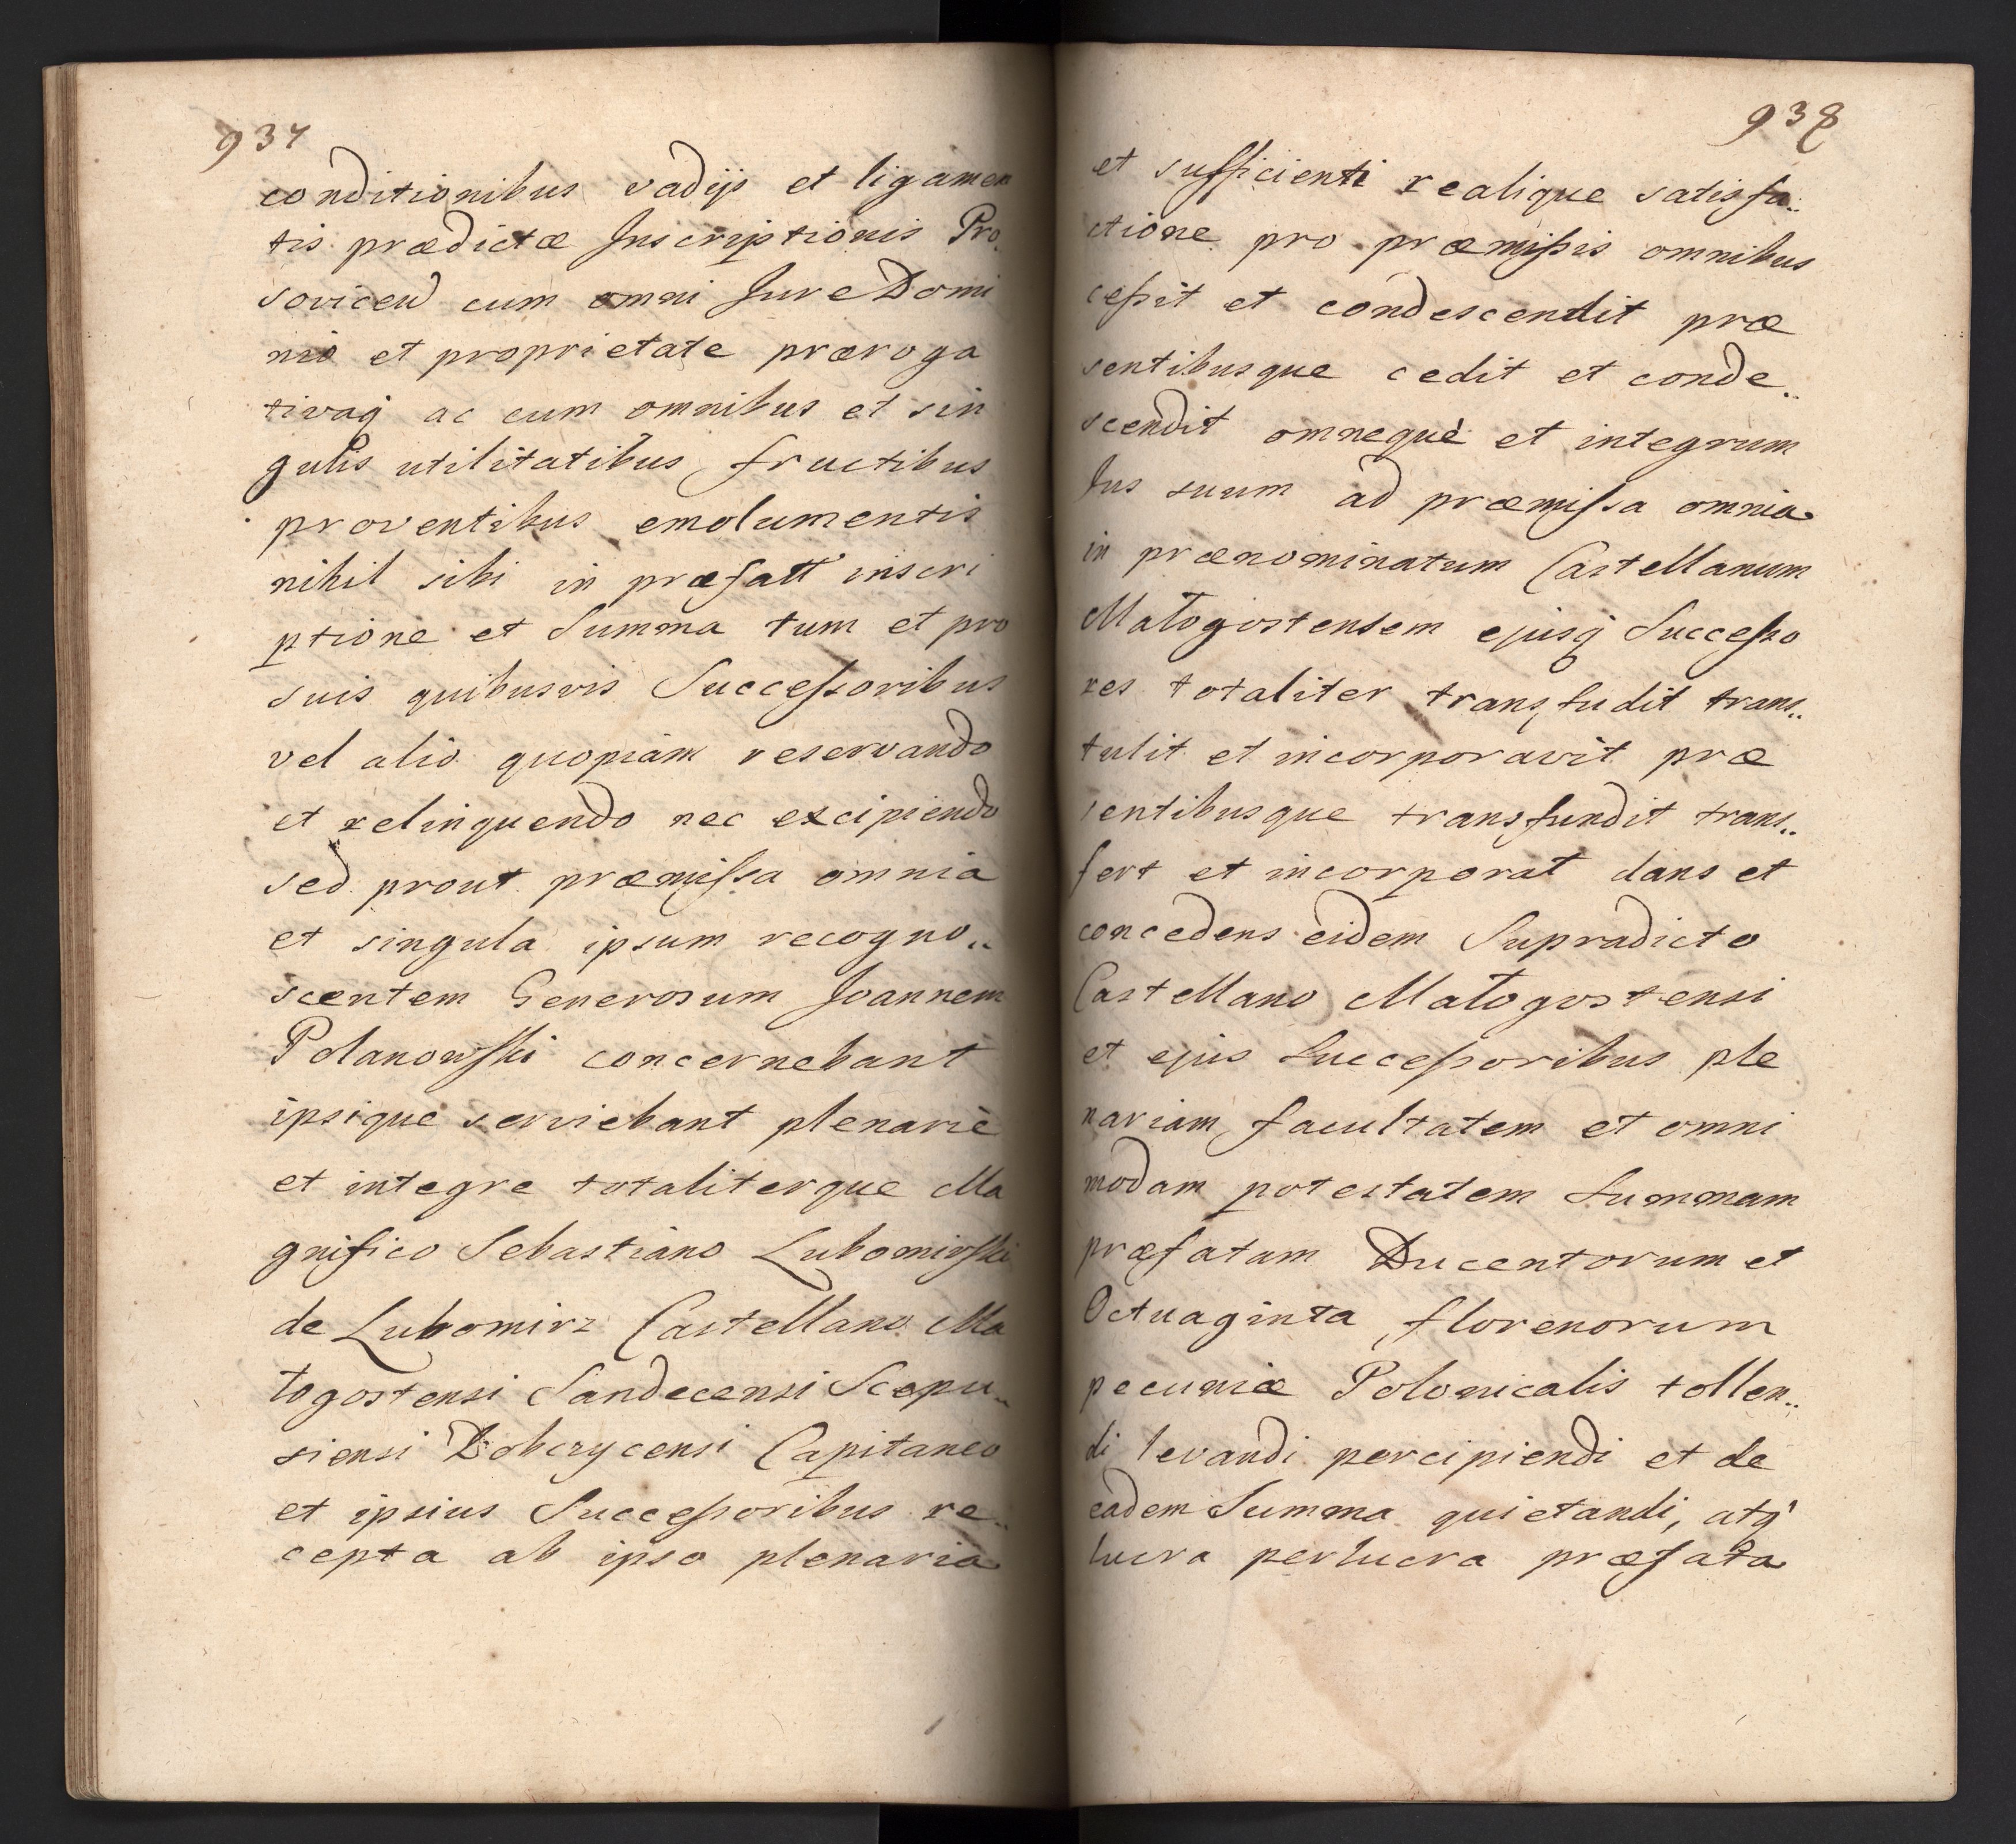 937
conditionibus vadijs et ligamen
tis prædictæ Inscriptionis Pro
sovicen cum omni Jure Domi
nio et proprietate præroga
tivaq ac cum omnibus et sin
gulis utilitatibus fructibus
proventibus emolumentis
nihil sibi in præfatt inscri
ptione et Summa tum et pro
suis quibusvis Successoribus
vel alio quopiam reservando
et relinquendo nec excipiendo
sed prout præmissa omnia
et singula ipsum recogno..
scentem Generosum Joannem
Polanowski concernebant
ipsique serviebant plenariè
et integre totaliterque Ma
gnifico Sebastiano Lubomirski
de Lubomirz Castellano Ma
łogostensi Sandecensi Scepu..
siensi Dobczycensi Capitaneo
et ipsius Successoribus re..
cepta ab ipso plenaria
938
et sufficienti realique satisfa..
ctione pro præmissis omnibus
cessit et condescendit præ
sentibusque cedit et conde..
scendit omnequè et integrum
Jus suum ad præmissa omnia
in prænominatum Castellanum
Małogostensem ejusq Successo
res totaliter transfudit trans..
tulit et incorporavit præ
sentibusque transfundit trans..
fert et incorporat dans et
concedens eidem Supradicto
Castellano Małogostensi
et ejus Successoribus ple
nariam facultatem et omni
modam potestatem Summam
præfatam Ducentorum et
Octuaginta florenorum
pecuniæ Polonicalis tollen..
di levandi percipiendi et de
eadem Summa quietandi, atq
lucra perlucra præfata